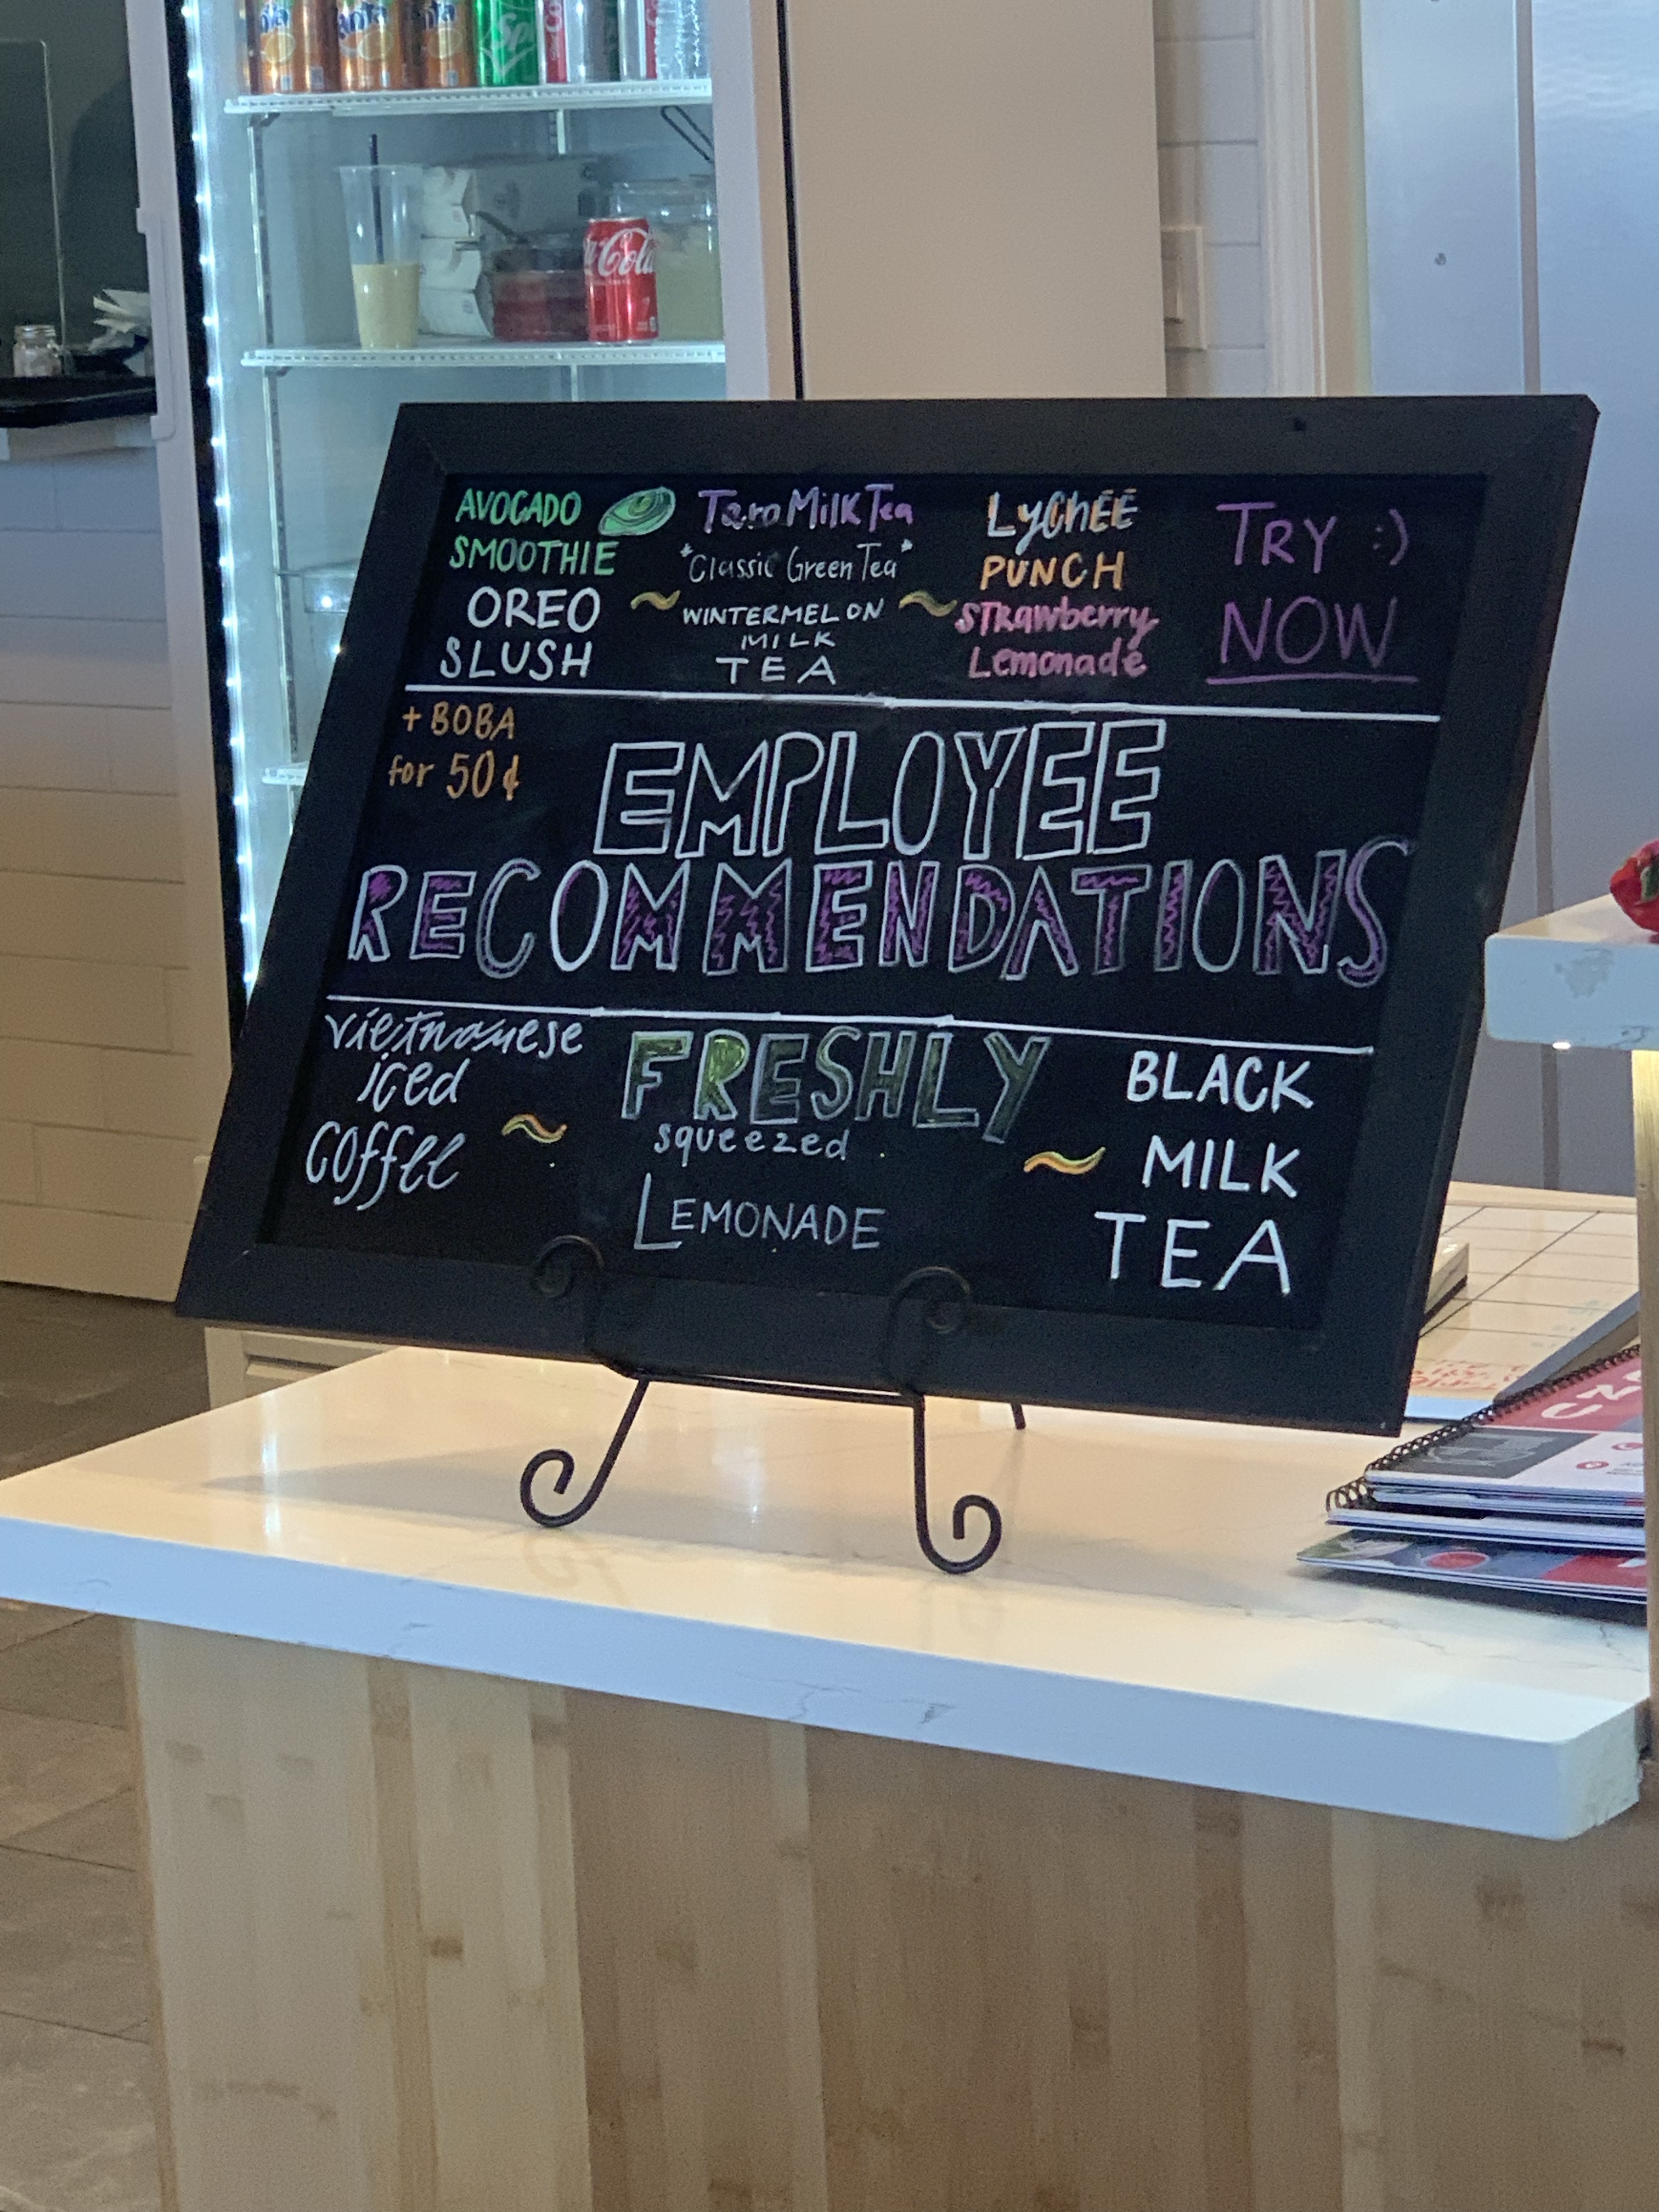 AVOCADO
SMOOTHIE
OREO
SLUSH
Taro Milk Tea
*Classic Green Tea*
WINTERMELON
MILK
TEA
LyChEE
PUNCH
STRawberry
Lemonade
TRY :)
NOW
+ BOBA
for 50¢
EMPLOYEE
RECOMMENDATIONS
vietnamese
iced
coffee
FRESHLY
squeezed
LEMONADE
BLACK
MILK
TEA